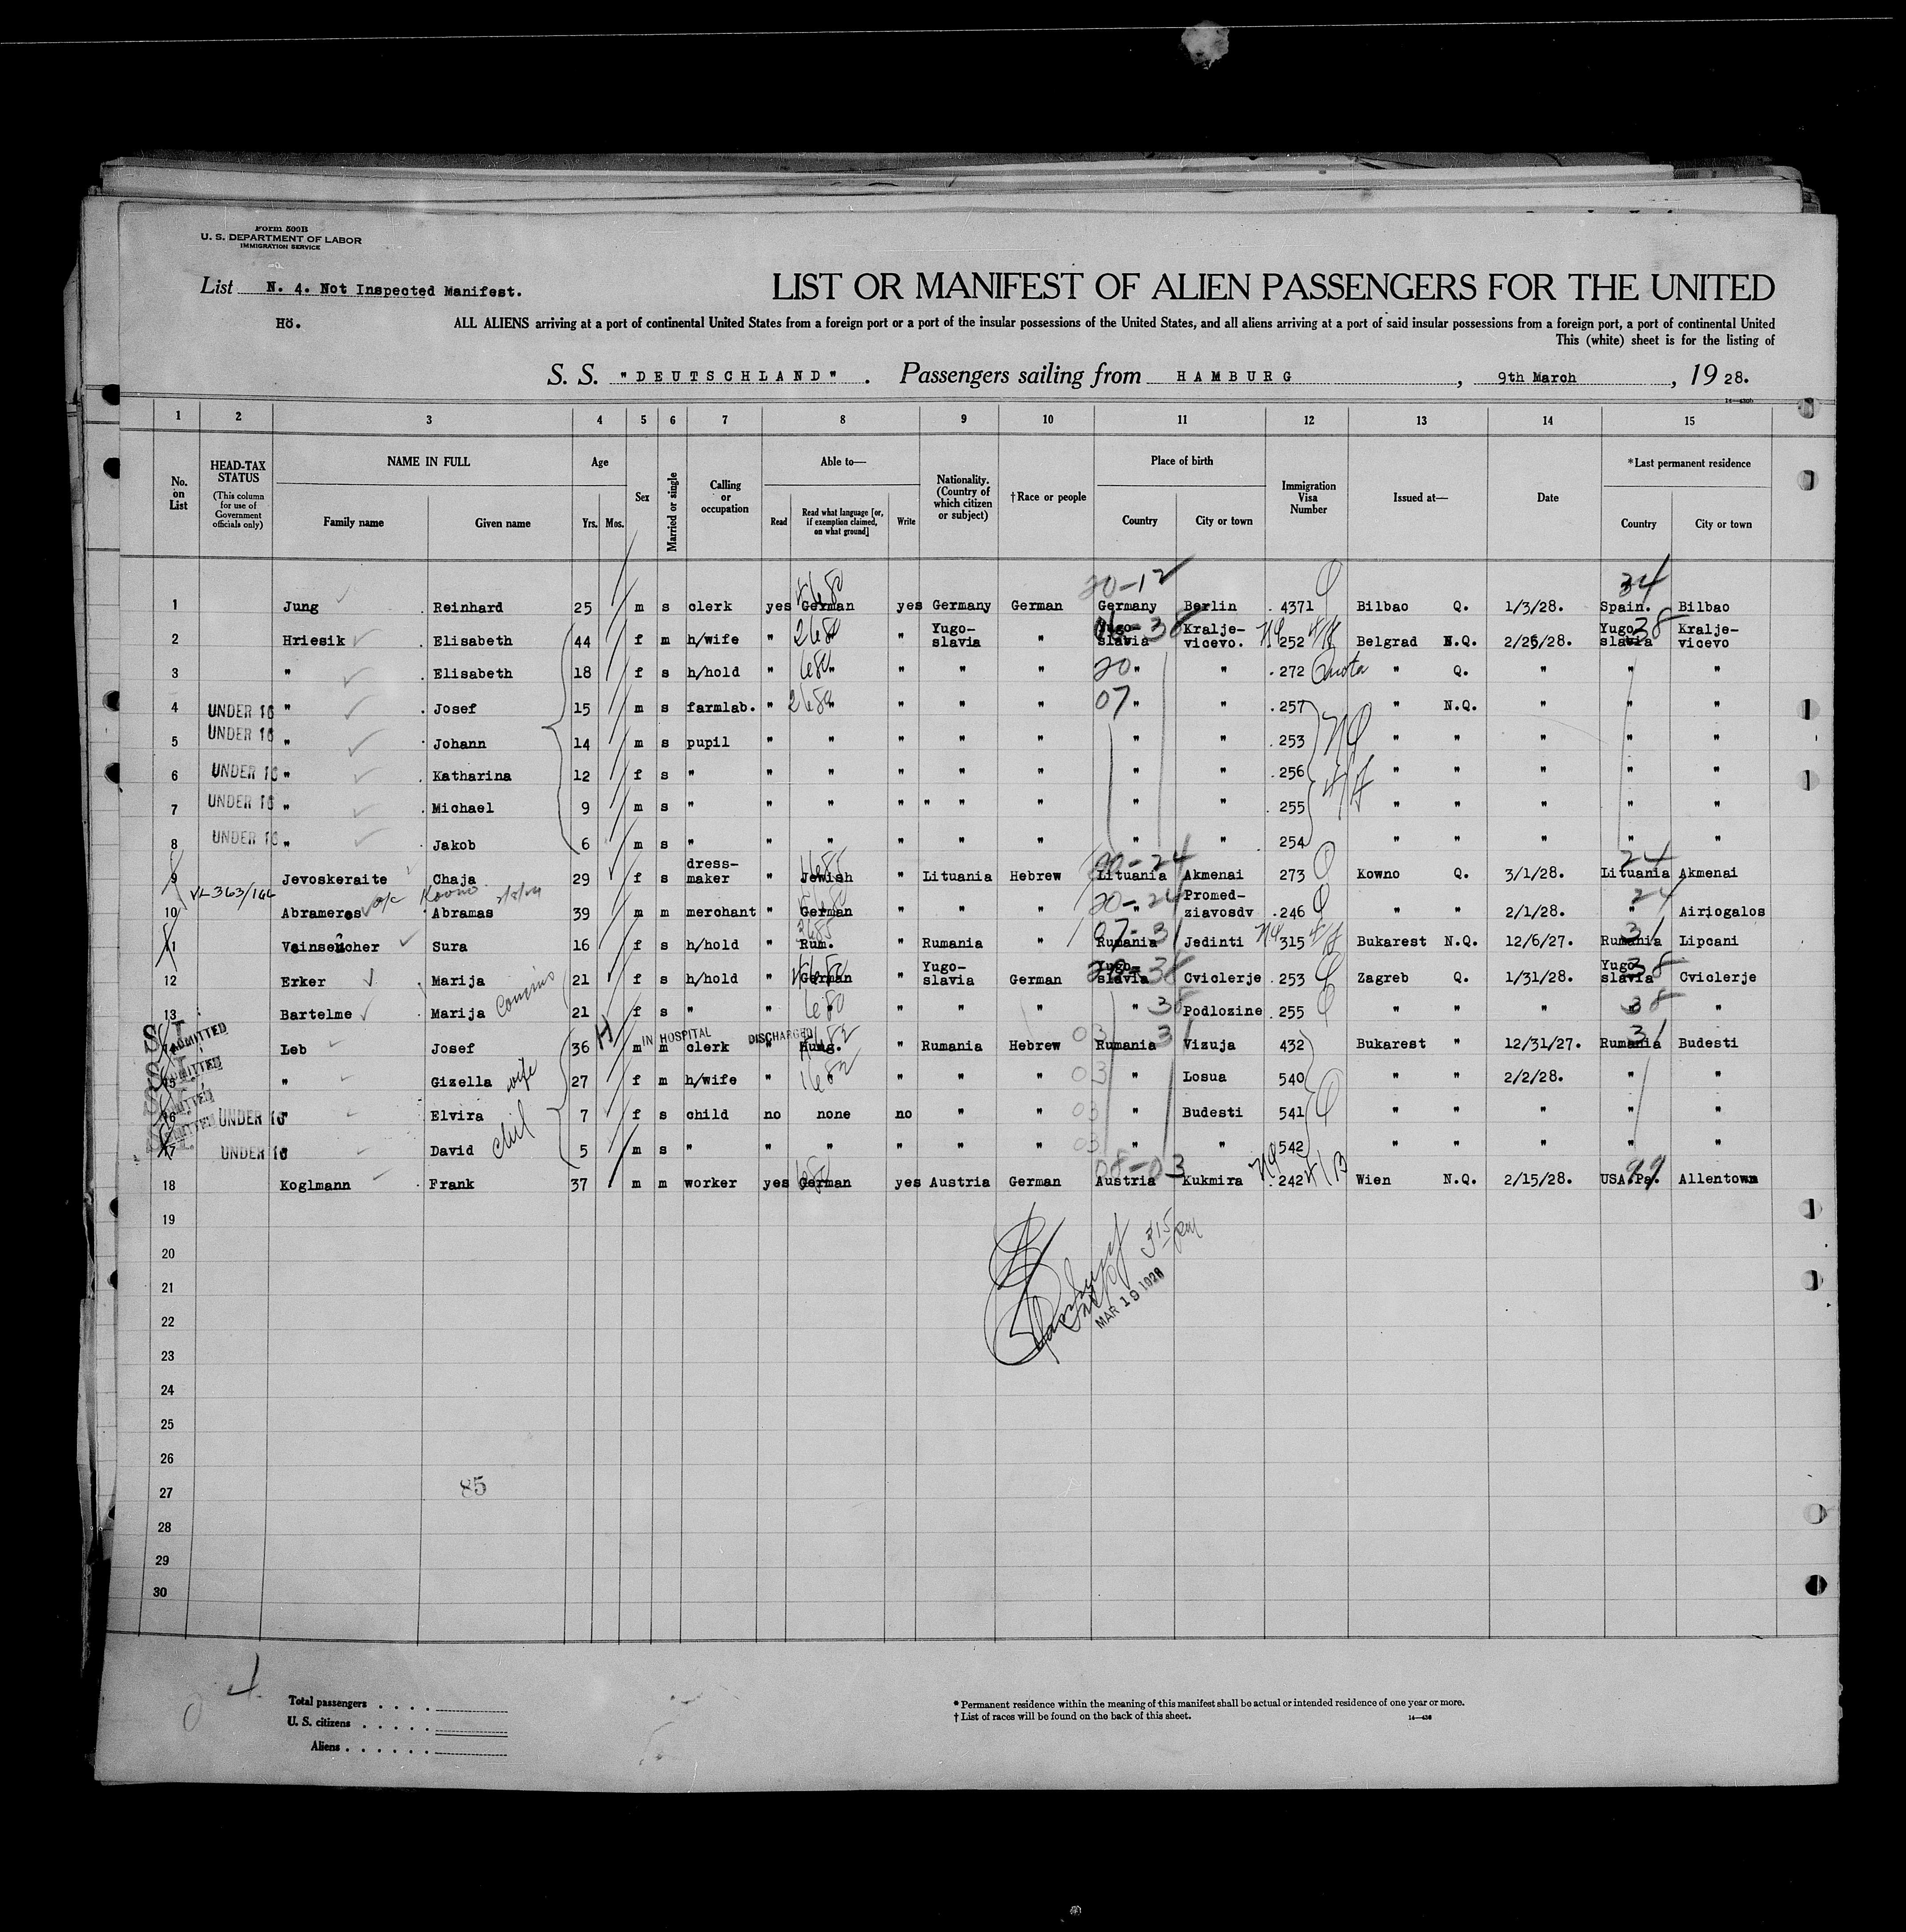 Form 500B
U. S. DEPARTMENT OF LABOR
IMMIGRATION SERVICE
List N. 4. Not Inspected Manifest.
LIST OR MANIFEST OF ALIEN PASSENGERS FOR THE UNITED
Hö.
ALL ALIENS arriving at a port of continental United States from a foreign port or a port of the insular possessions of the United States, and all aliens arriving at a port of said insular possessions from a foreign port, a port of continental United
This (white) sheet is for the listing of
S. S. "DEUTSCHLAND". Passengers sailing from HAMBURG, 9th March, 19 28.
1 2 3 4 5 6 7 8 9 10 11 12 13 14 15
No. on List
HEAD-TAX STATUS (This column for use of Government officials only)
NAME IN FULL Family name Given name
Age Yrs. Mos.
Sex
Married or single
Calling or occupation
Able to— Read Read what language [or, if exemption claimed, on what ground] Write
Nationality. (Country of which citizen or subject)
†Race or people
Place of birth Country City or town
Immigration Visa Number
Issued at—
Date
*Last permanent residence Country City or town
20-12 34
1 Jung Reinhard 25 m s clerk yes German yes Germany German Germany Berlin 4371 Bilbao Q. 1/3/28. Spain. Bilbao
2 Hriesik Elisabeth 44 f m h/wife " " Yugo-slavia " Yugo-slavia Kralje-vicevo. 252 Belgrad N.Q. 2/25/28. Yugo-slavia Kralje-vicevo
3 " Elisabeth 18 f s h/hold " " " " " 20 " " 272 Quota " Q. " " "
4 UNDER 16 " Josef 15 m s farmlab. " " " " " 07 " " 257 " N.Q. " " "
5 UNDER 16 " Johann 14 m s pupil " " " " " " " 253 " " " " "
6 UNDER 16 " Katharina 12 f s " " " " " " " " 256 " " " " "
7 UNDER 16 " Michael 9 m s " " " " " " " " 255 " " " " "
8 UNDER 16 " Jakob 6 m s " " " " " " " " 254 " " " " "
9 Jevoskeraite Chaja 29 f s dress-maker " Jewish " Lituania Hebrew Lituania Akmenai 273 Kowno Q. 3/1/28. Lituania Akmenai
10 Abrameros Abramas 39 m m merchant " German " " " " Promed-ziavosdv 246 " " 2/1/28. " Airiogalos
11 Vainsencher Sura 16 f s h/hold " Rum. " Rumania " Rumania Jedinti 315 Bukarest N.Q. 12/6/27. Rumania Lipcani
12 Erker Marija 21 f s h/hold " German " Yugo-slavia German Yugo-slavia Cviolerje 253 Zagreb Q. 1/31/28. Yugo-slavia Cviolerje
13 Bartelme Marija 21 f s " " " " " " Podlozine 255 " " " " "
ADMITTED Leb Josef 36 H IN HOSPITAL DISCHARGED m m clerk " Hung. " Rumania Hebrew Rumania Vizuja 432 Bukarest " 12/31/27. Rumania Budesti
15 " Gizella wife 27 f m h/wife " " " " " Losua 540 " " 2/2/28. " "
16 UNDER 16 " Elvira 7 f s child no none no " " " Budesti 541 " " " " "
17 UNDER 16 " David 5 m s " " " " " " " " 542 " " " " "
18 Koglmann Frank 37 m m worker yes German yes Austria German Austria Kukmira 242 Wien N.Q. 2/15/28. USA.Pa. Allentown
19
20
MAR 19 1928
21
22
23
24
25
26
27 85
28
29
30
Total passengers
U. S. citizens
Aliens
* Permanent residence within the meaning of this manifest shall be actual or intended residence of one year or more.
† List of races will be found on the back of this sheet.